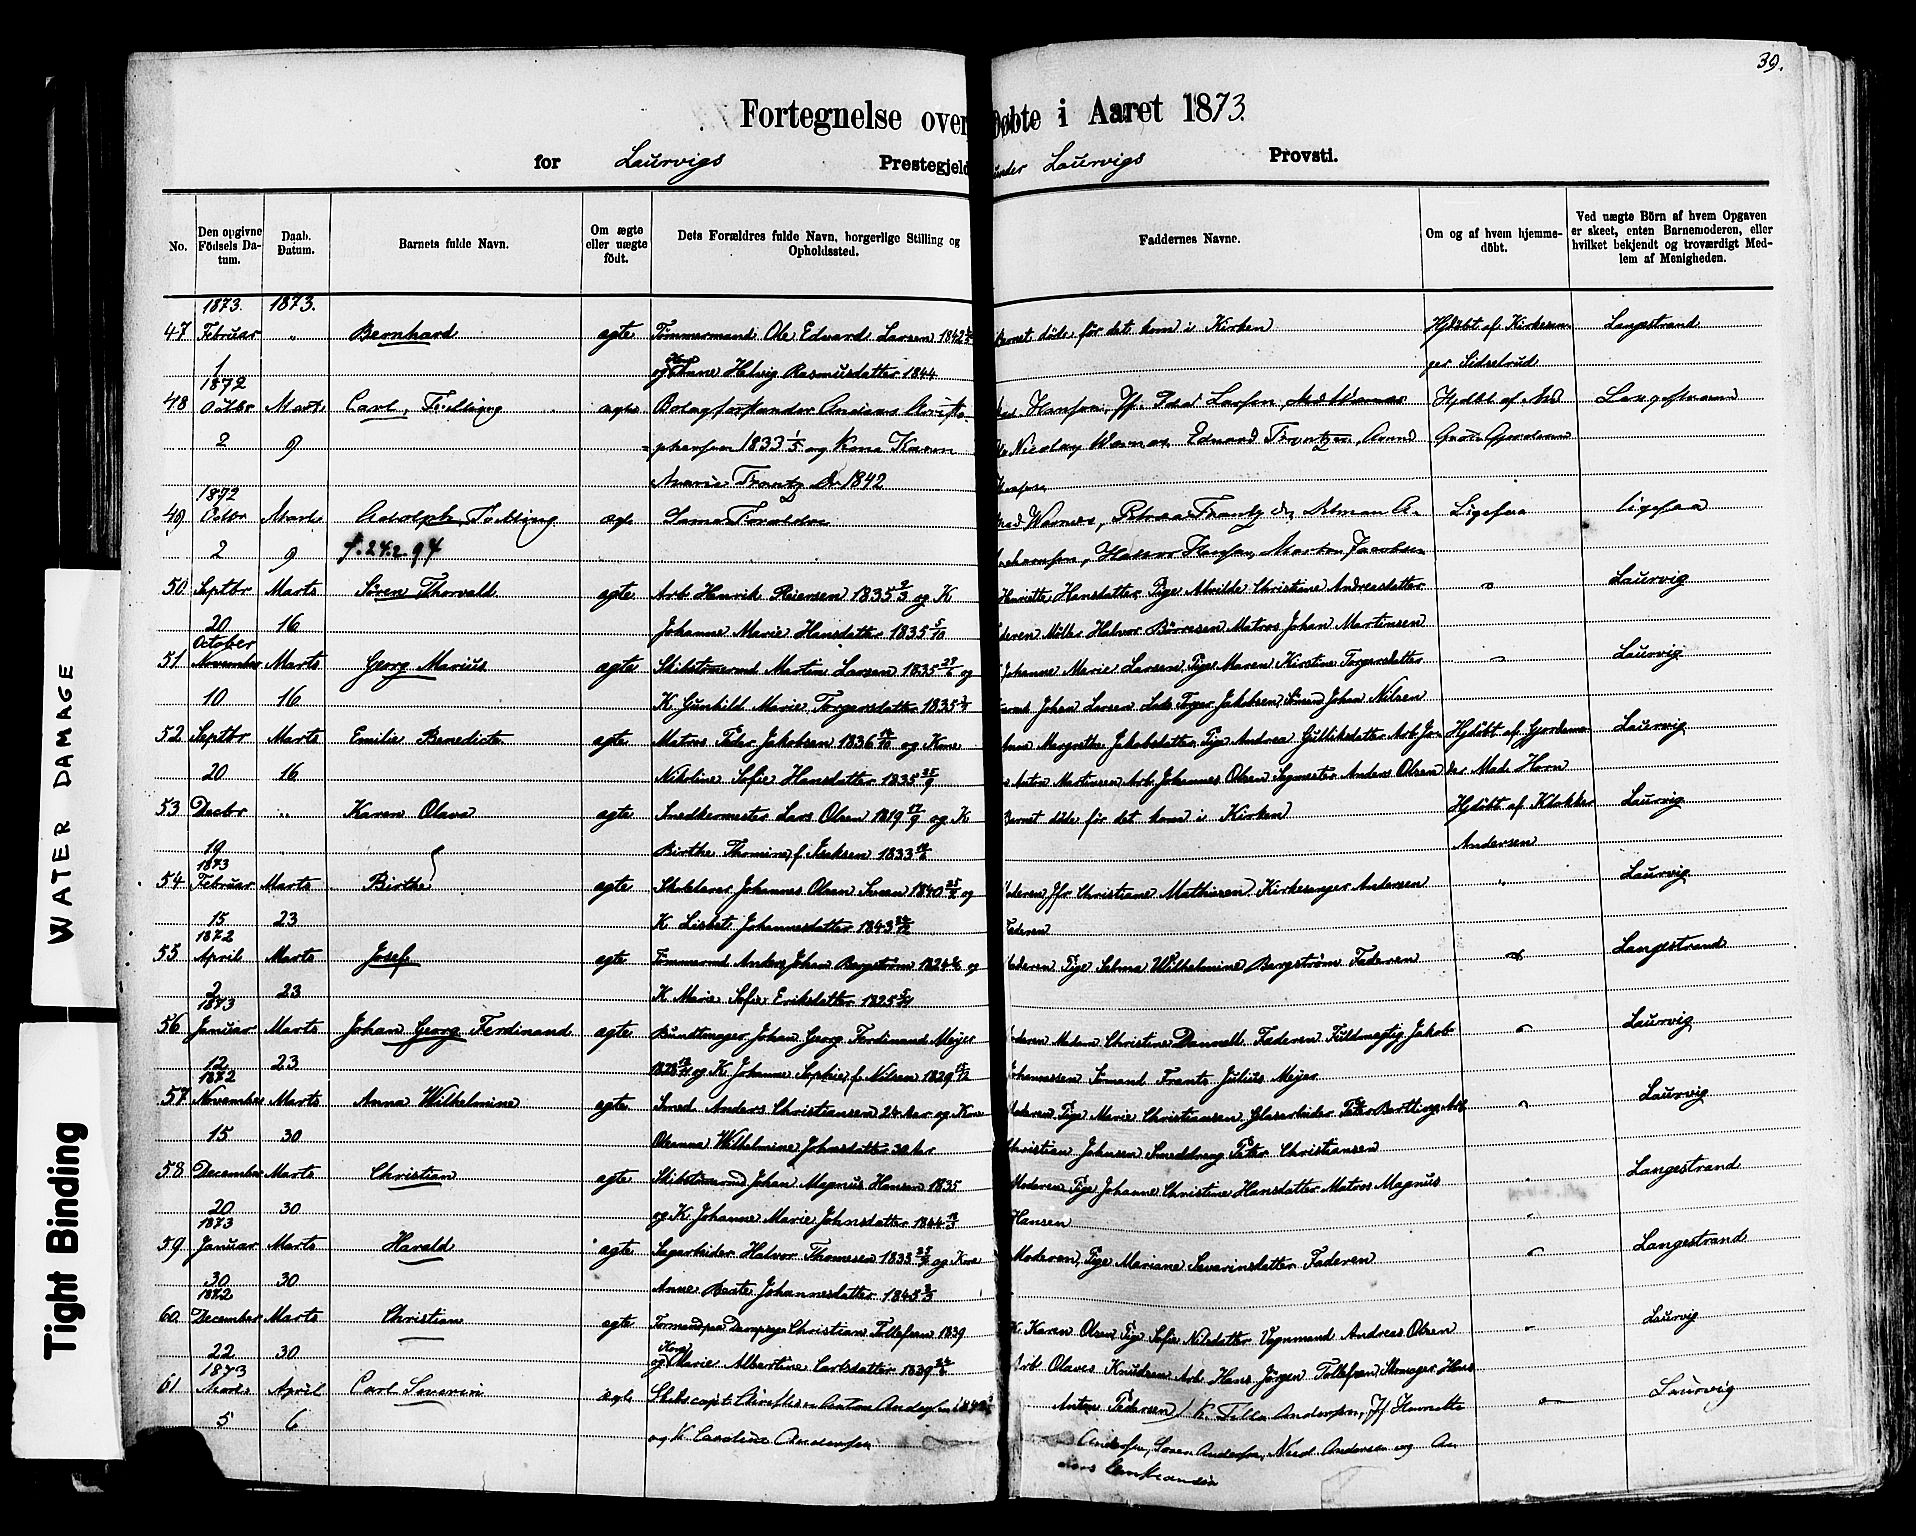 39.
Fortegnelse over Døbte i Aaret 1873.
for Laurvigs Prestegjeld under Laurvigs Provsti.
No. | Den opgivne Födsels Datum. | Daab. Datum. | Barnets fulde Navn. | Om ægte eller uægte födt. | Dets Forældres fulde Navn, borgerlige Stilling og Opholdssted. | Faddernes Navne. | Om og af hvem hjemmedöbt. | Ved uægte Börn af hvem Opgaven er skeet, enten Barnemoderen, eller hvilket bekjendt og troværdigt Medlem af Menigheden.
1873. 1873.
47 Februar " Bernhard ægte Tømmermand Ole Edvard Larsen 1842 Barnet døde før det kom i Kirken Hjdöbt af Kirkesan- Langestrand
1 og Kone Anne Helvig Rasmusdatter 1844 ger Sidselrud
1872
48 Octbr Marts Carl, Tvilling ægte Andreas Christo- Hansen, Larsen, Hjdöbt af Langestrand
2 9 phersen 1833 1/5 og Kone Karen Nicolay Edvard Frantzen
Marie Frantz 1842
1872
49 Octbr Marts Adolph, Tvilling ægte Samme Forældre Ligesaa ligesaa
2 9 f. 24.2.94 Hansen, Morten Jacobsen
50 Septbr Marts Søren Thorvald ægte Arb Henrik Reiersen 1835 2/3 og K Henriette Hansdatter, Pige Alvilde Christine Andreasdatter " Laurvig
20 16 Johanne Marie Hansdatter 1835 5/10 Faderen Møller Halvor Börresen Matros Johan Martinsen
October
51 November Marts Georg Marius ægte Skibstømmd Martin Larsen 1835 og Johanne Marie Larsen Pige Maren Kirstine Torgersdatter " Laurvig
10 16 K Gunhild Marie Torgersdatter 1835 Johan Larsen Lods Torger Jakobsen, Sömand Johan Nilsen
52 Septbr Marts Emilie Benedicte ægte Matros Peder Jakobsen 1836 og Kone Anne Margrethe Jakobsdatter, Pige Andrea Gulliksdatter Arb Jo- Hjdöbt af Gjordemo- Laurvig
20 16 Nikoline Sofie Hansdatter 1835 25/9 Anton Martinsen Arb Johannes Olsen Segmester Anders Olsen der Mad. Horn
53 Decbr " Karen Olava ægte Snedkermester Lars Olsen 1819 og K Barnet döde för det kom i Kirken Hjdöbt af Klokker Laurvig
19 Birthe Thomine f. Isaksen 1833 Andersen
1873
54 Februar Marts Birthe ægte Skolelærer Johannes Olsen 1840 og Moderen, Jfr Christiane Mathisen Kirkesanger Andersen " Laurvig
15 23 K Lisbet Johannesdatter 1843 Faderen
1872
55 April Marts Josef ægte Tømmermd Anders Johan Bergström 1824 og Moderen Pige Selma Wilhelmine Bergström Faderen " Langestrand
2 23 K Marie Sofie Eriksdatter 1825
1873
56 Januar Marts Johan Georg Ferdinand ægte Bundtmager Johan Georg Ferdinand Meyer Moderen Madam Christine Dannell Faderen Fuldmegtig Jakob " Laurvig
12 23 1828 og K Johanne Sophie f. Nilsen 1829 Johannessen Sömand Frants Julius Meyer
1872
57 November Marts Anna Wilhelmine ægte Smed Anders Christiansen 24 Aar og Kone Moderen Pige Marie Christiansen Glasarbeider Peter Bertling Arb " Laurvig
15 30 Oleanna Wilhelmine Johnsdatter 30 Aar Christian Johnsen Smeddreng Peter Christiansen
58 December Marts Christian ægte Skibstømmd Johan Magnus Hansen 1835 Moderen Pige Johanne Christine Hansdatter Matros Magnus " Langestrand
20 30 og K Johanne Marie Johnsdatter 1844 Hansen
1873
59 Januar Marts Harald ægte Sagarbeider Halvor Thomesen 1835 og Kone Moderen, Pige Mariane Severinsdatter Faderen " Langestrand
30 30 Anne Beate Johannesdatter 1845
1872
60 December Marts Christian ægte Formand paa Dampsag Christian Tollefsen 1839 K. Karen Olsen Pige Sofie Nilsdatter Vognmand Andreas Olsen " Laurvig
22 30 og Kone Marie Albertine Carlsdatter 1839 Arb Olaves Knudsen Arb Hans Jörgen Tollefsen, Skomager Hans
1873
61 Marts April Carl Severin ægte Skibscapt. Christian Anton Andersen 1840 Anton Pedersen / K. Andersen, Jf Henriette " Laurvig
5 6 og K Caroline Andersen Andersen, Søren Andersen, Andersen og An-
ders
WATER DAMAGE
Tight Binding